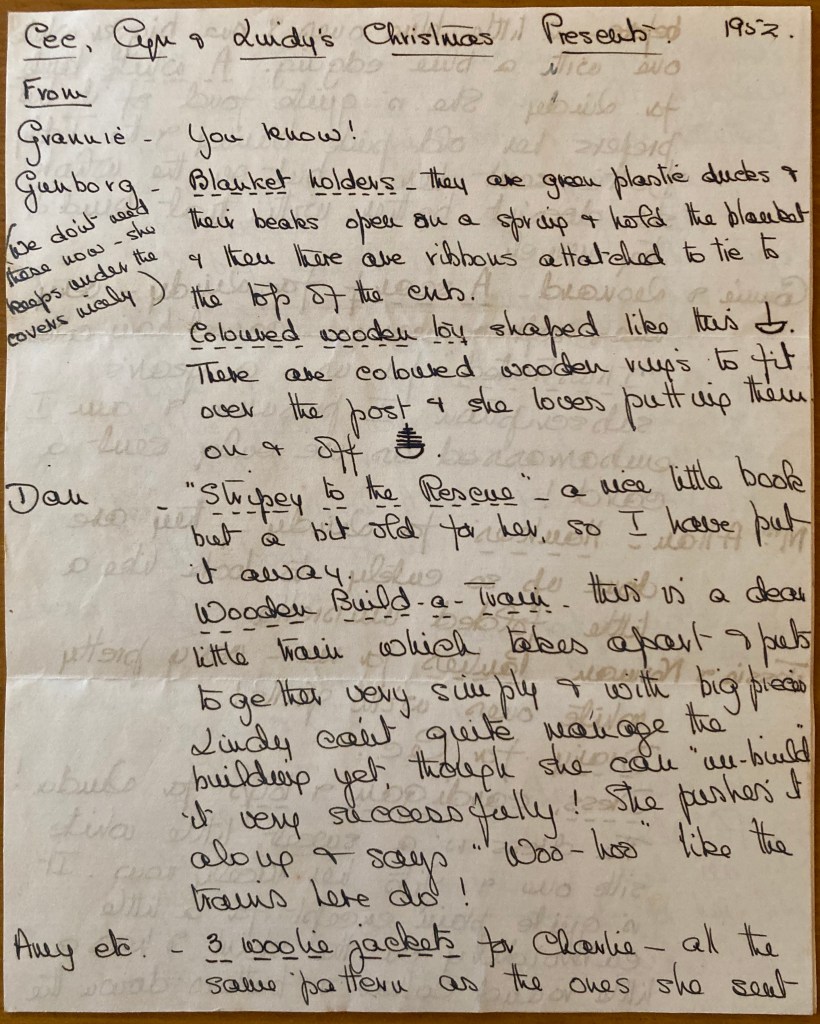 Cee, Cyn & Lindy's Christmas Presents. 1952.
From
Grannie - You know!
Gunborg - Blanket holders - they are green plastic ducks &
their beaks open on a spring & hold the blanket
& then there are ribbons attatched to tie to
the top of the crib.
(We don't need
these now - she
keeps under the
covers nicely)
Coloured wooden toy shaped like this
There are coloured wooden rings to fit
over the post & she loves putting them
on & off
Dan - "Stripey to the Rescue" - a nice little book
but a bit old for her, so I have put
it away.
Wooden Build-a-Train - this is a dear
little train which takes apart & puts
together very simply & with big pieces
Lindy can't quite manage the
building yet, though she can "un-build"
it very successfully! She pushes it
along & says "Woo-hoo" like the
trains here do!
Amy etc. - 3 woolie jackets for Charlie - all the
same pattern as the ones she sent